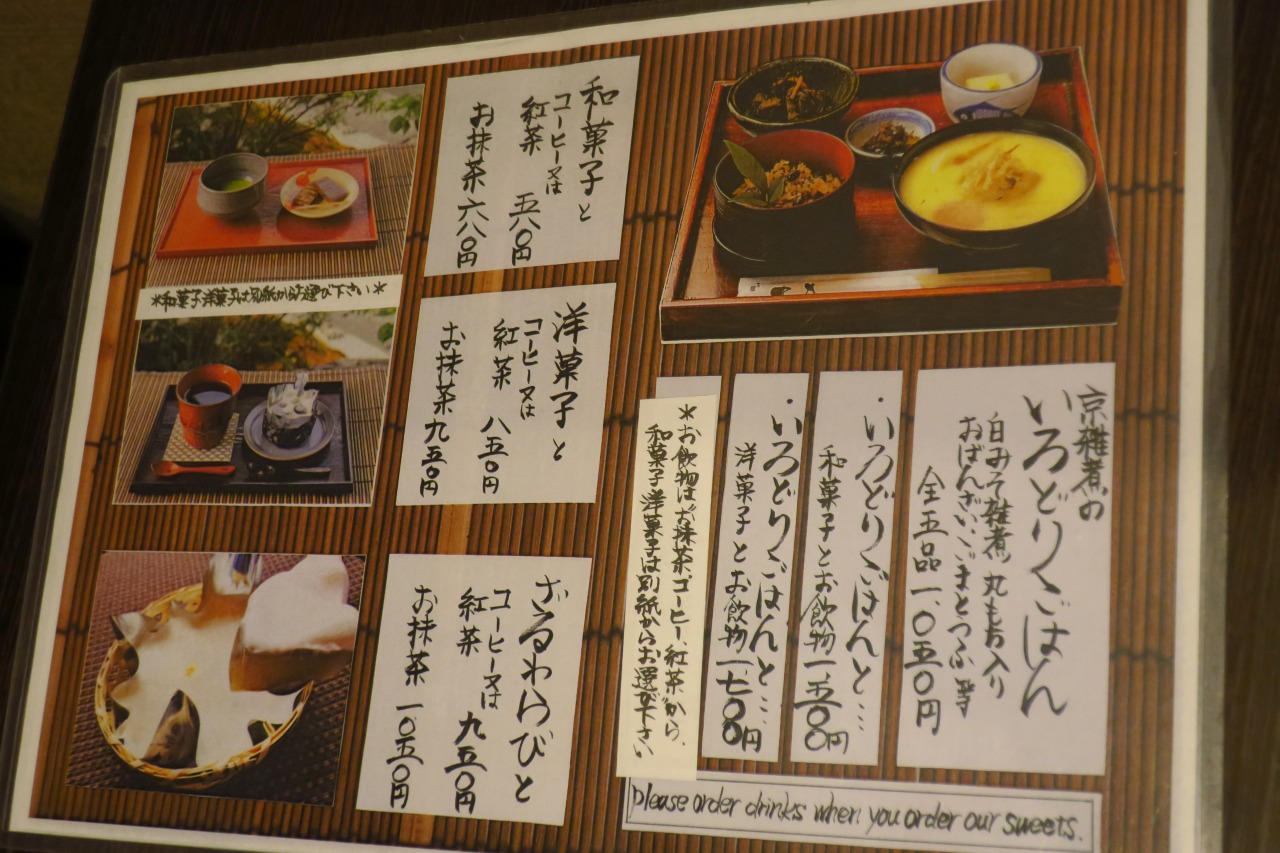 京雑煮の
いろどりごはん
白みそ雑煮 丸もち入り
おばんざい・ごまとうふ 等
全五品 一、〇五〇円
・いろどりごはんと…
和菓子とお飲物 一、五〇〇円
・いろどりごはんと…
洋菓子とお飲物 一、七〇〇円
＊お飲物は“お抹茶・コーヒー・紅茶”から、
和菓子 洋菓子は別紙からお選び下さい
please order drinks when you order our sweets.
和菓子と
コーヒー又は
紅茶 五八〇円
お抹茶 六八〇円
＊和菓子洋菓子は別紙からお選び下さい＊
洋菓子と
コーヒー又は
紅茶 八五〇円
お抹茶 九五〇円
ざるわらびと
コーヒー又は
紅茶 九五〇円
お抹茶 一〇五〇円